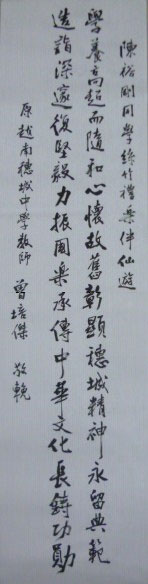 陳裕剛同學絲竹禮樂伴仙遊
學養高超而隨和心懷故舊彰顯穗城精神永留典範
造詣深邃復堅毅力振國樂承傳中華文化長鑄功勳
原越南穗城中學教師 曾培傑 敬輓